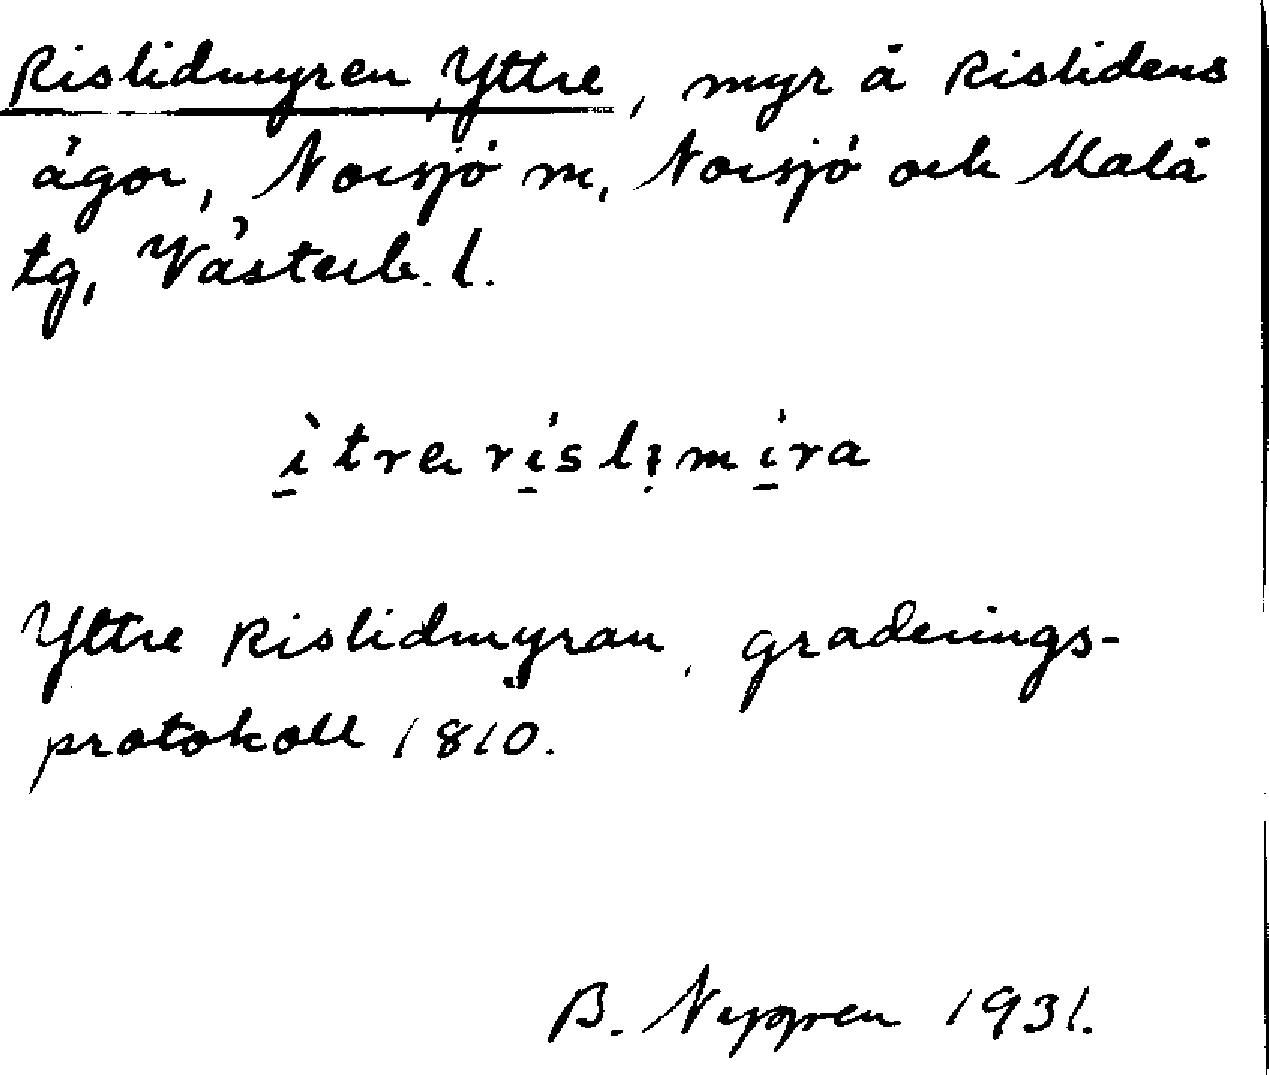 Rislidmyren, Yttre, myr å Rislidens
ägor, Norsjö m, Norsjö och Malå
tg, Västerb. l.
ì̱trα rí̱slị mí̱ra
Yttre Rislidmyran, graderings-
protokoll 1810.
B. Nygren 1931.